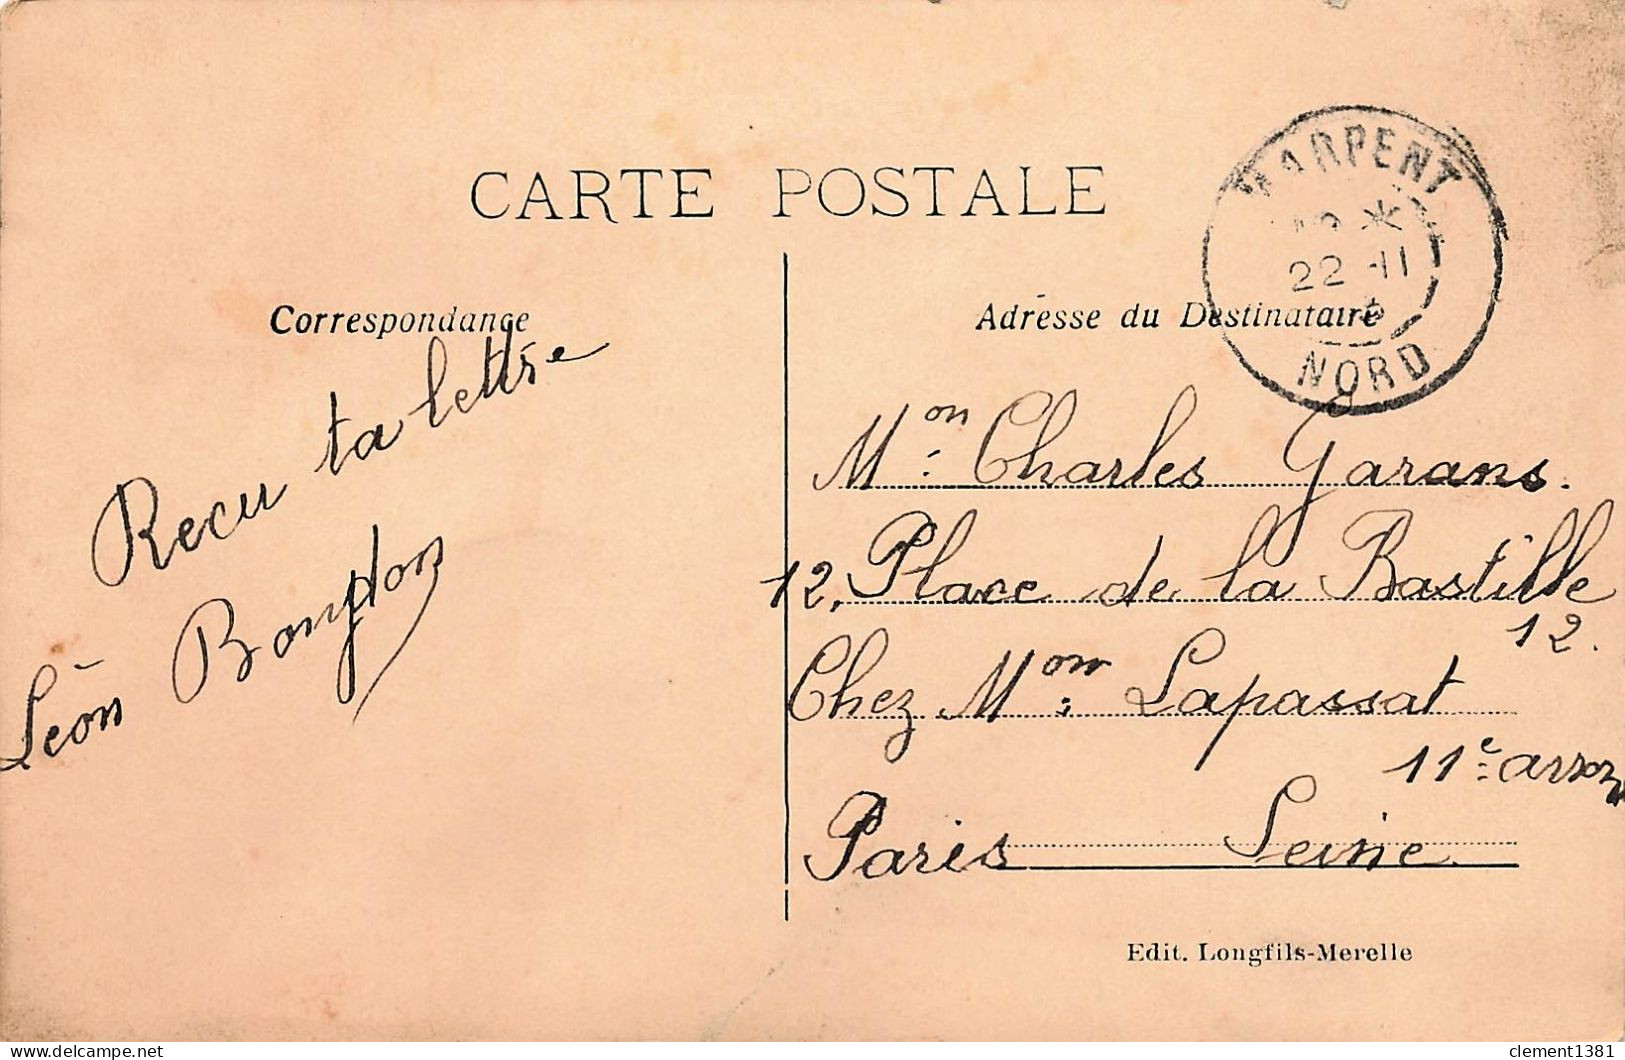 CARTE POSTALE
Correspondance
Recu ta lettre
Léon
Adresse du Destinataire
MARPENT
22 -11
NORD
Mon: Charles Garans.
12, Place de la Bastille
12.
Chez Mon: Lapassat
11e arron
Paris Seine
Edit. Longfils-Merelle
delcampe.net
clement1381